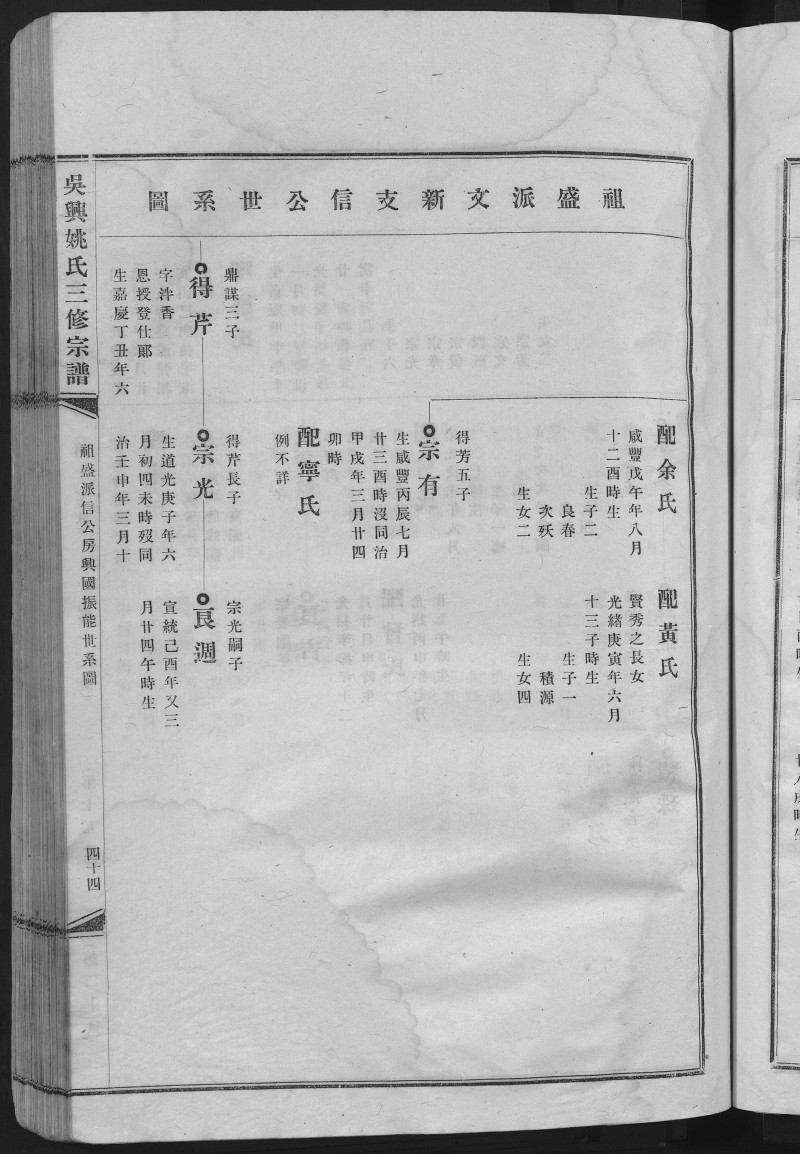 祖盛派文新支信公世系圖
配余氏
咸豐戊午年八月
十二酉時生
生子二
良春
次殀
生女二
配黃氏
賢秀之長女
光緒庚寅年六月
十三子時生
生子一
積源
生女四
得芳五子
宗有
生咸豐丙辰七月
廿三酉時沒同治
甲戌年三月廿四
卯時
配寧氏
例不詳
鼎謀三子
得芹
字泮香
恩授登仕郎
生嘉慶丁丑年六
得芹長子
宗光
生道光庚子年六
月初四未時歿同
治壬申年三月十
宗光嗣子
良週
宣統己酉年又三
月廿四午時生
吳興姚氏三修宗譜
祖盛派信公房興國振能世系圖
四十四